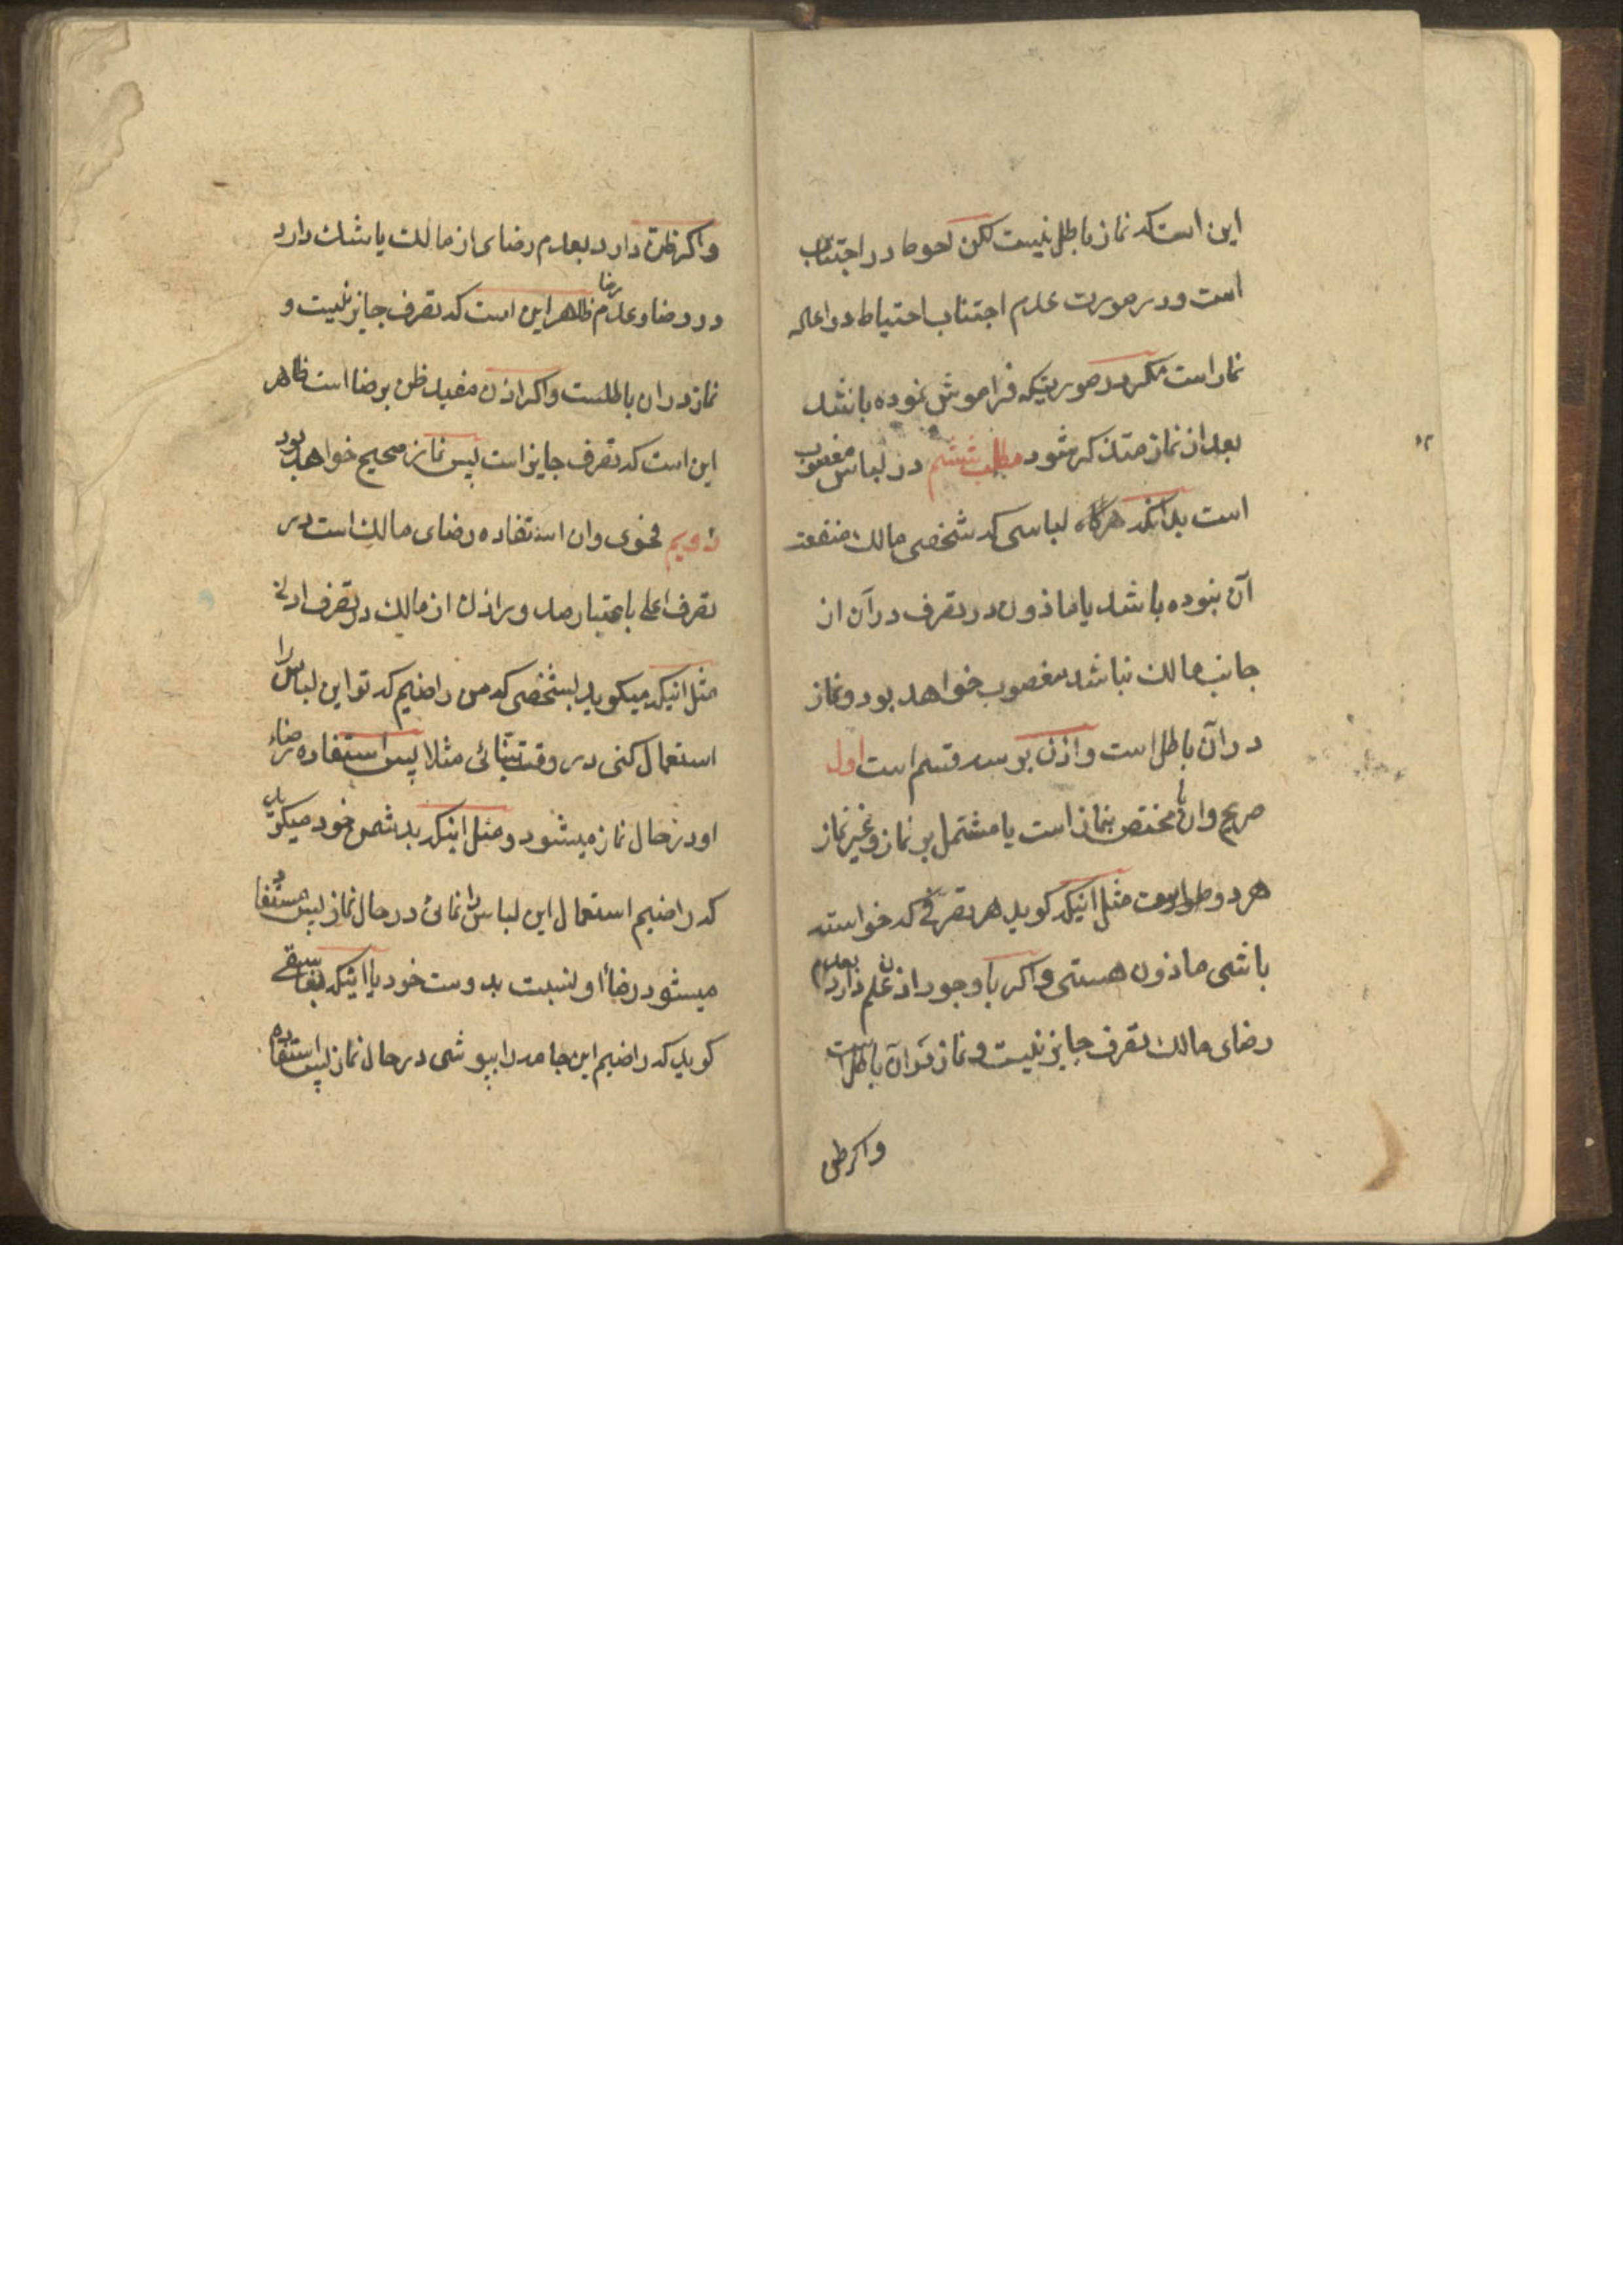 این است که نماز باطل نیست لکن احوط در اجتناب
است و در صورت عدم اجتناب احتیاط در اعاده
نماز است مکر در صورتیکه فراموش نموده باشد
بعد از نماز متذکر شود مطلب ششم در لباس مغصوب
است بدانکه هرکاه لباسی که شخصی مالک منفعت
آن نبوده باشد یا ماذون در تصرف در آن از
جانب مالک نباشد مغصوب خواهد بود و نماز
در آن باطل است و اذن بر سه قسم است اول
صریح وان یا مختص بنماز است یا مشتمل بر نماز و غیر نماز
هر دو مثل انیکه کوید هر تصرفی که خواسته
باشی ماذون هستی و اکر با وجود اذن علم دارد بعدم
رضای مالک تصرف جایز نیست و نماز در آن باطل است
واکر ظن
واکر ظن دارد بعدم رضای از مالک یا شک دارد
در رضا و عدم رضا ظاهر این است که تصرف جایز نیست و
نماز در ان باطلست واکر اذن مفید ظن برضا است ظاهر
این است که تصرف جایز است پس نماز صحیح خواهد بود
دویم فحوی وان استفاده رضای مالک است در
تصرف اعلی باعتبار صدور اذن از مالک در تصرف ادنی
مثل انیکه میکوید بشخصی که من راضیم که تو این لباس را
استعمال کنی در وقت مثلا پس استفاده رضاء
او در حال نماز میشود و مثل اینکه بدشمن خود میکوید
که راضیم استعمال این لباس را نمائی در حال نماز پس مستفاد
میشود رضاء او نسبت بدوست خود یا اینکه بفاسقی
کوید که راضیم این جامه را بپوشی در حال نماز پس استفاده